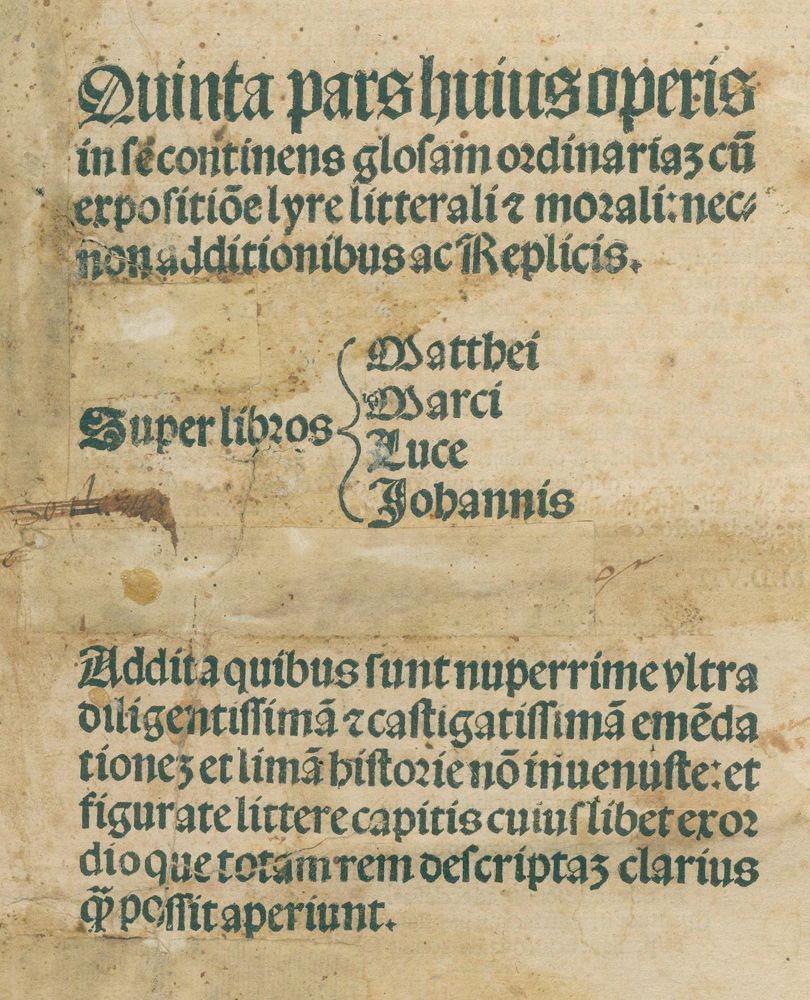 Quinta pars huius operis
in se cōntinens glosam ordinariaꝫ cū
expositiōe lyre litterali ⁊ morali: nec⸗
non additionibus ac Replicis.
Matthei
Marci
Super libros
Luce
Johannis
Addita quibus sunt nuperrime vltra
diligentissimā ⁊ castigatissimā emēda
tioneꝫ et limā historie nō inuenuste: et
figurate littere capitis cuiuslibet exor
dio que totam rem descriptaꝫ clarius
qͣ̄ possit aperiunt.
M.D.VII